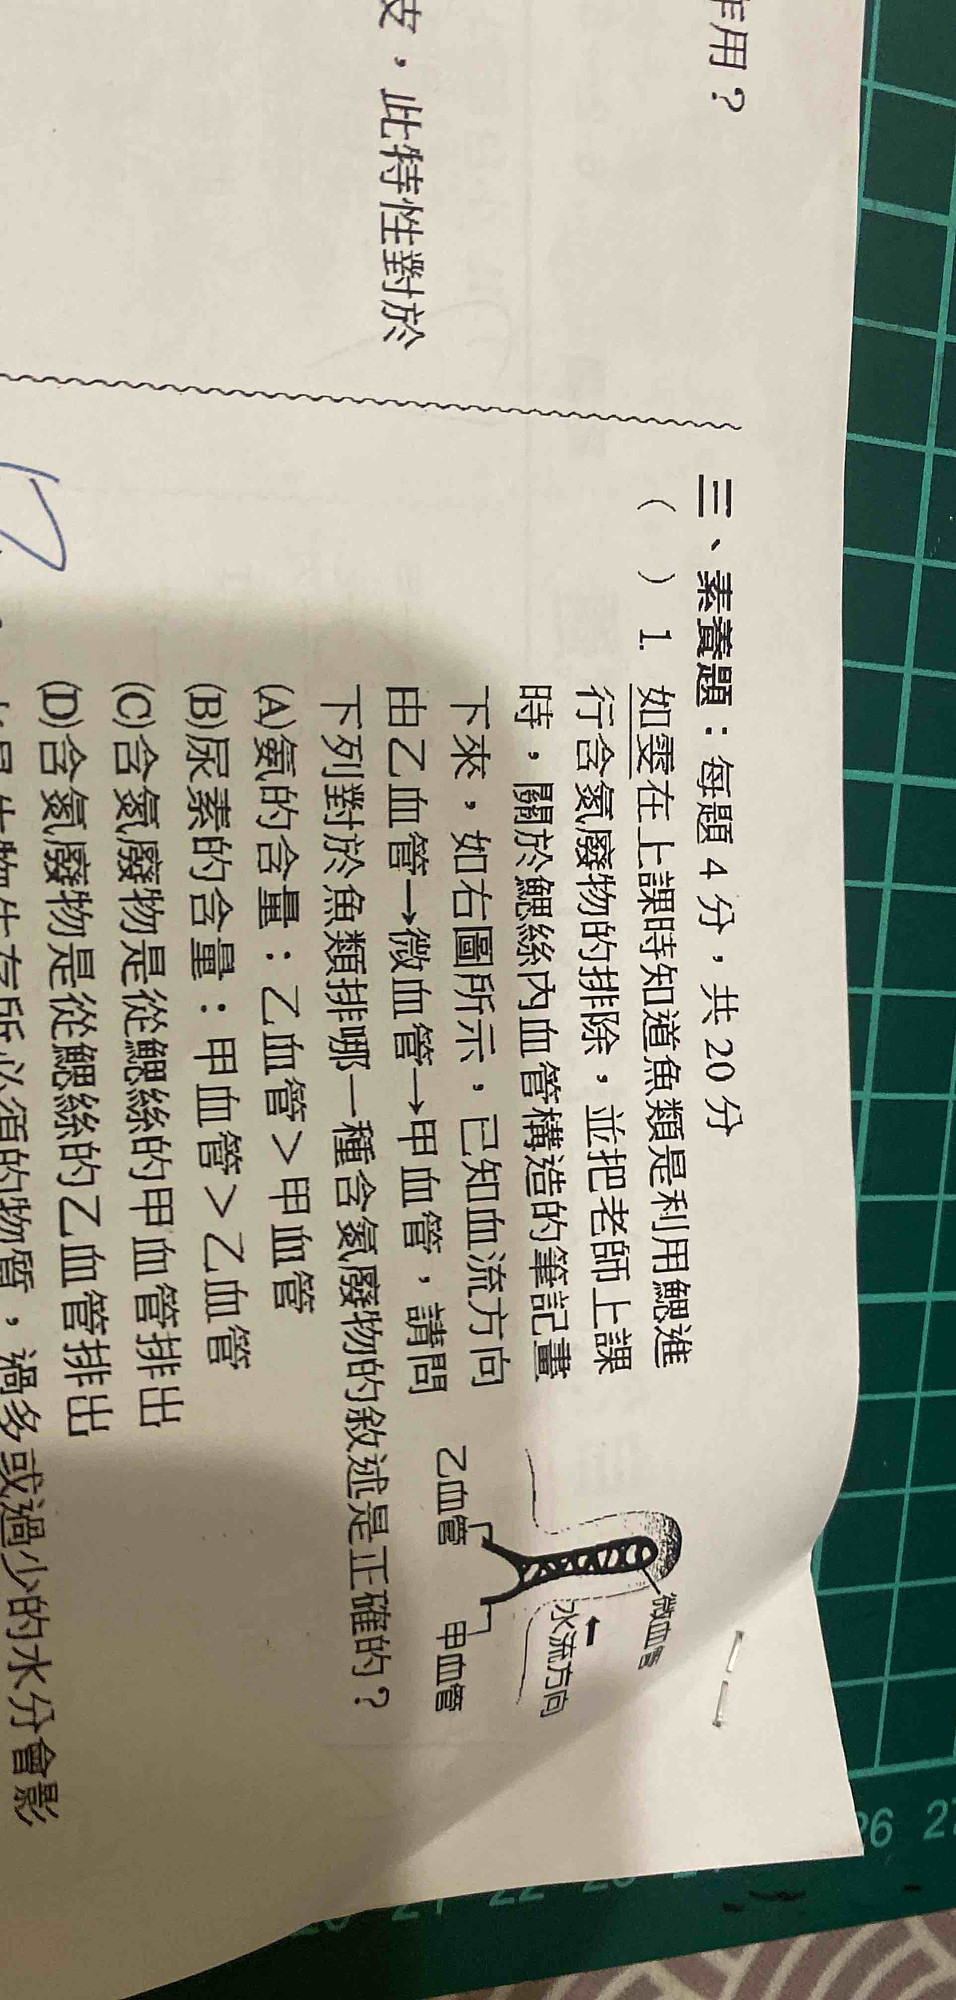 作用？
皮，此特性對於
三、素養題：每題 4 分，共 20 分
（　）1. 如雯在上課時知道魚類是利用鰓進
行含氮廢物的排除，並把老師上課
時，關於鰓絲內血管構造的筆記畫
下來，如右圖所示，已知血流方向
由乙血管→微血管→甲血管，請問
下列對於魚類排哪一種含氮廢物的敘述是正確的？
(A)氨的含量：乙血管＞甲血管
(B)尿素的含量：甲血管＞乙血管
(C)含氮廢物是從鰓絲的甲血管排出
(D)含氮廢物是從鰓絲的乙血管排出
微血管
水流方向
乙血管
甲血管
水是生物生存所必須的物質，過多或過少的水分會影
26 27
22
21